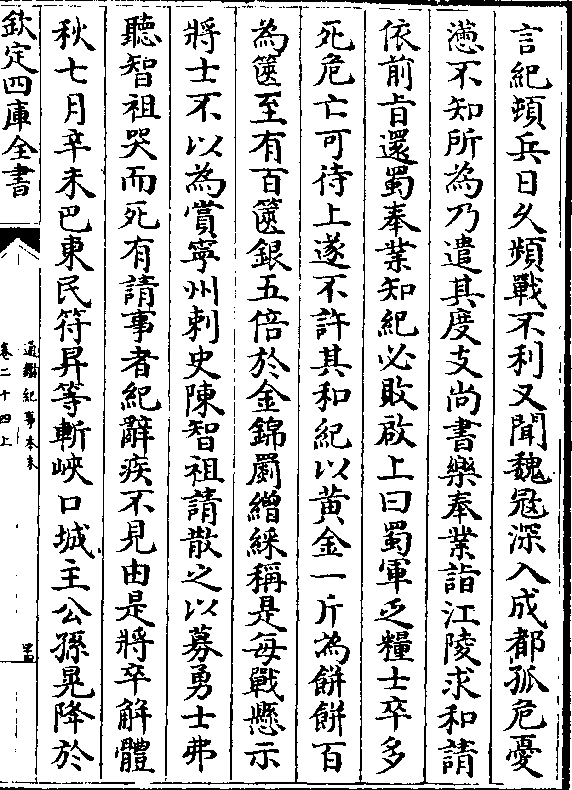 言紀頓兵日久頻戰不利又聞魏冦深入成都孤危憂
懣不知所為乃遣其度支尚書樂奉業詣江陵求和請
依前㫖還蜀奉業知紀必敗啟上曰蜀軍乏糧士卒多
死危亡可待上遂不許其和紀以黃金一斤為餅餅百
為篋至有百篋銀五倍於金錦罽繒綵稱是每戰懸示
將士不以為賞寧州刺史陳智祖請散之以募勇士弗
聽智祖哭而死有請事者紀辭疾不見由是將卒解體
秋七月辛未巴東民符昇等斬峽口城主公孫晃降於
欽定四庫全書
通鑑紀事本末
卷二十四上